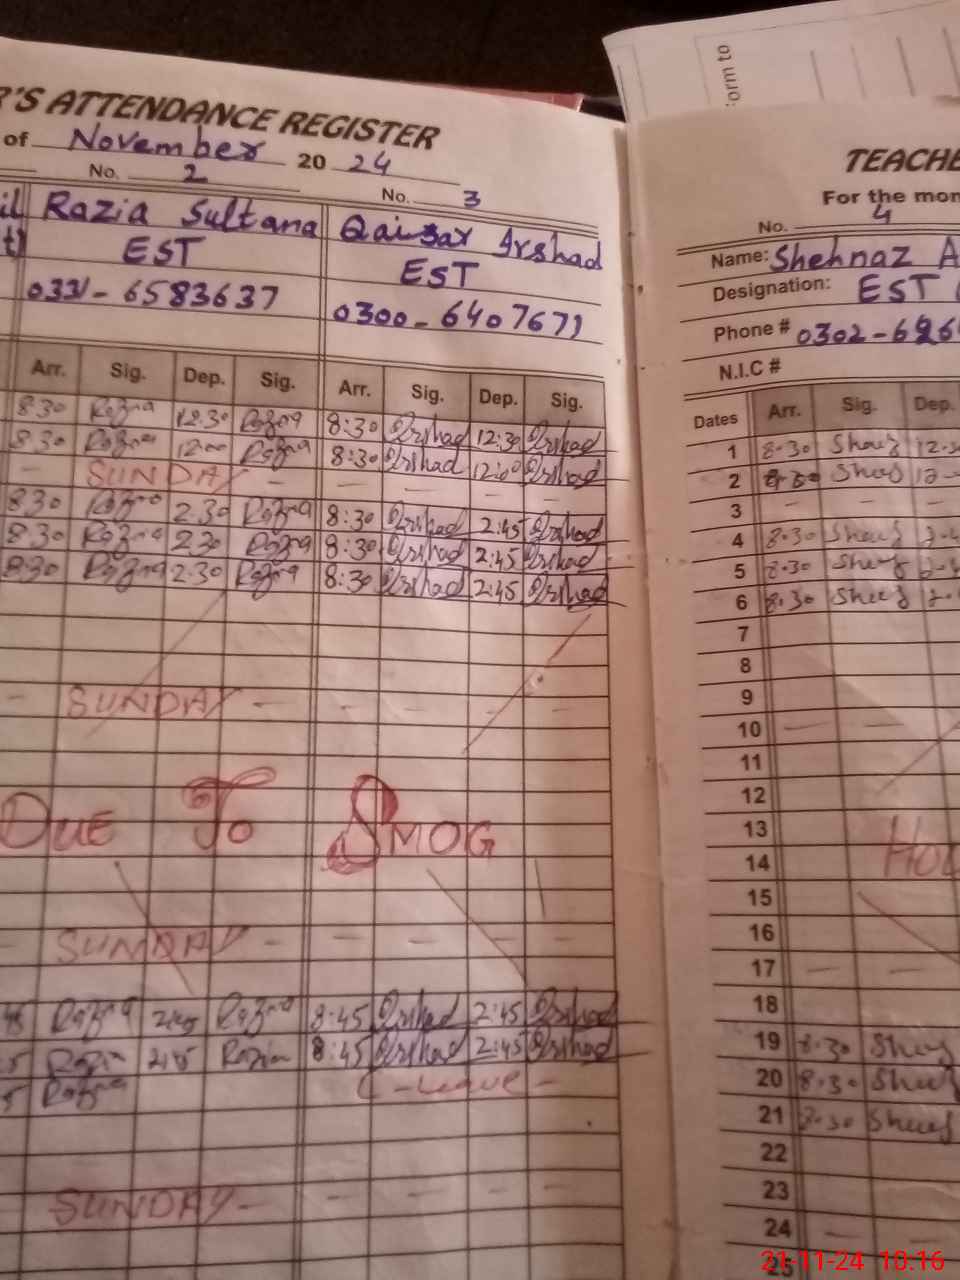 'S ATTENDANCE REGISTER
of November 2024
No. 2
No. 3
Razia Sultana
EST
0331-6583637
Qaisar Arshad
EST
0300-6407671
Arr. Sig. Dep. Sig. Arr. Sig. Dep. Sig.
8:30 Razia 12.30 Razia 8:30 Arshad 12:30 Arshad
8:30 Razia 12:00 Razia 8:30 Arshad 12:00 Arshad
- SUNDAY - - - - -
8:30 Razia 2.30 Razia 8:30 Arshad 2:45 Arshad
8:30 Razia 2.30 Razia 8:30 Arshad 2:45 Arshad
8:30 Razia 2.30 Razia 8:30 Arshad 2:45 Arshad
- SUNDAY - - - - -
DUE To SMOG
- SUNDAY - - - - -
Razia 2:45 Razia 8:45 Arshad 2:45 Arshad
Razia 2:45 Razia 8:45 Arshad 2:45 Arshad
Razia C-Leave -
SUNDAY - - - - -
orm to
TEACHE
For the mon
No. 4
Name: Shehnaz A
Designation: EST
Phone # 0302-6
N.I.C #
Dates Arr. Sig. Dep.
1 8.30 12.3
2 8.30 12
3 - - -
4 8.30 2.4
5 8.30 2.4
6 8.30 2.
7
8
9
10 - -
11
12
13 HOL
14
15
16
17 - -
18
19 8.30
20 8.30
21 8.30
22
23
24
25
21-11-24 10:16